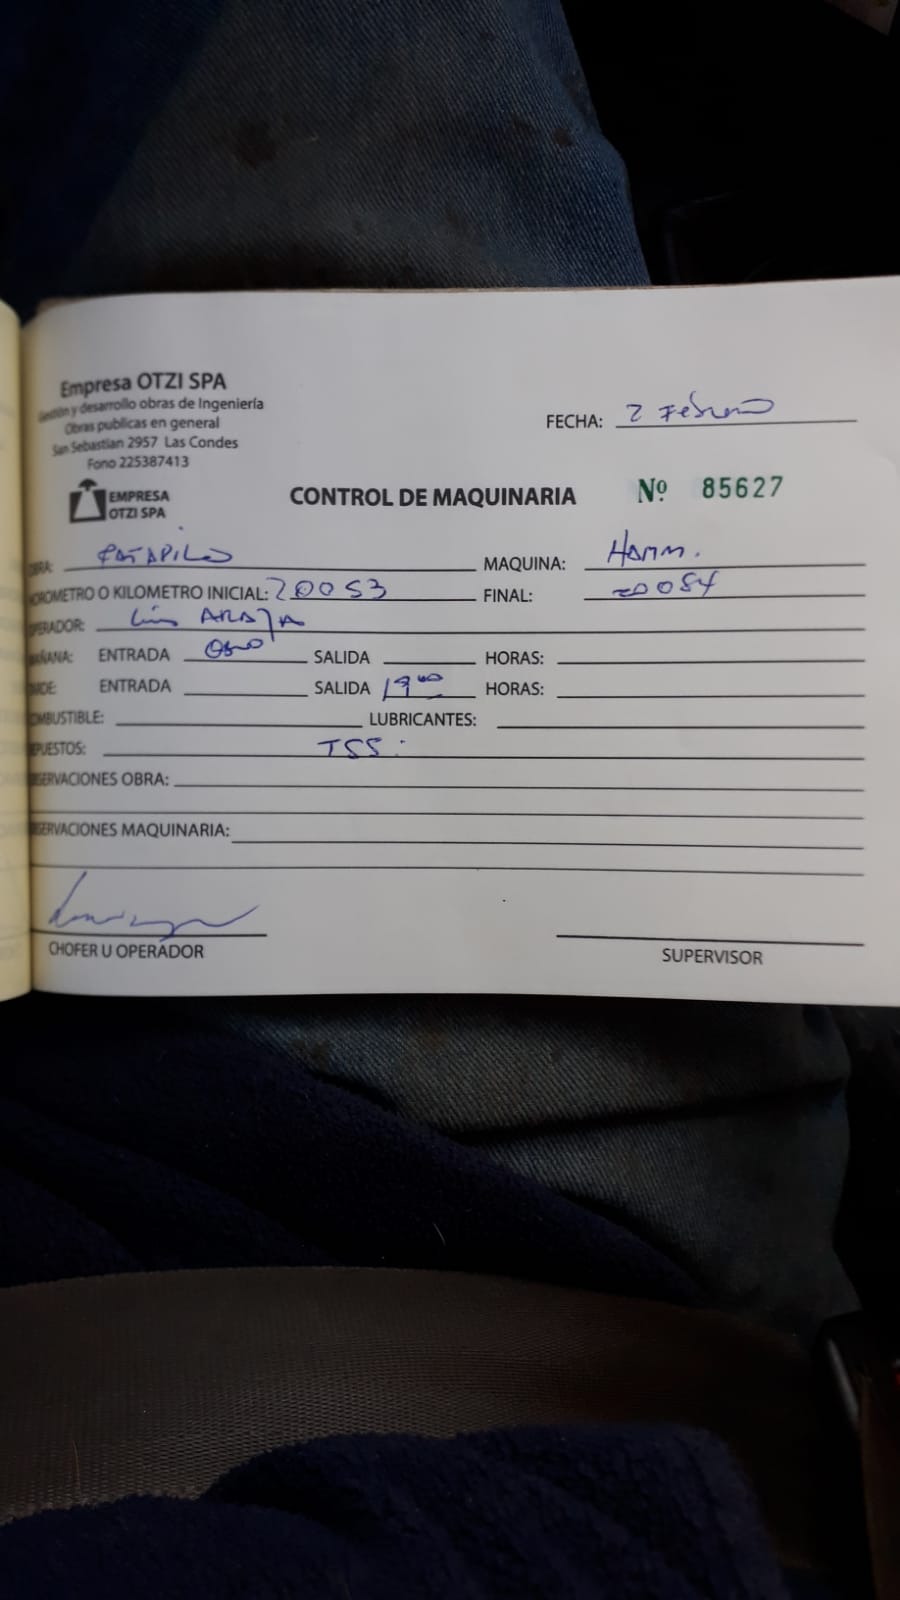 Empresa OTZI SPA
Gestión y desarrollo obras de Ingeniería
Obras publicas en general
San Sebastian 2957 Las Condes
Fono 225387413
FECHA: 2 Febrero
EMPRESA
OTZI SPA
CONTROL DE MAQUINARIA
Nº 85627
OBRA: MAQUINA: Hamm.
HOROMETRO O KILOMETRO INICIAL: 20053 FINAL: 20054
OPERADOR: Luis ARAYA
MAÑANA: ENTRADA SALIDA HORAS:
TARDE: ENTRADA SALIDA 19 00 HORAS:
COMBUSTIBLE: LUBRICANTES:
REPUESTOS: TSS.
OBSERVACIONES OBRA:
OBSERVACIONES MAQUINARIA:
CHOFER U OPERADOR
SUPERVISOR